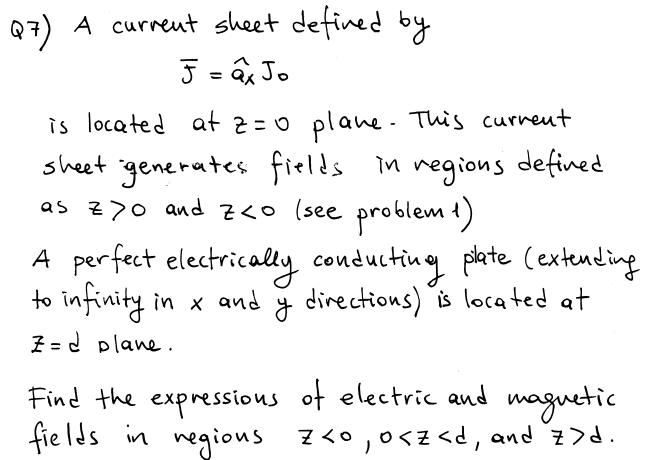 Q7) A current sheet defined by
J̄ = âₓ J₀
is located at z=0 plane. This current
sheet generates fields in regions defined
as z>0 and z<0 (see problem 1)
A perfect electrically conducting plate (extending
to infinity in x and y directions) is located at
z=d plane.
Find the expressions of electric and magnetic
fields in regions z<0, 0<z<d, and z>d.